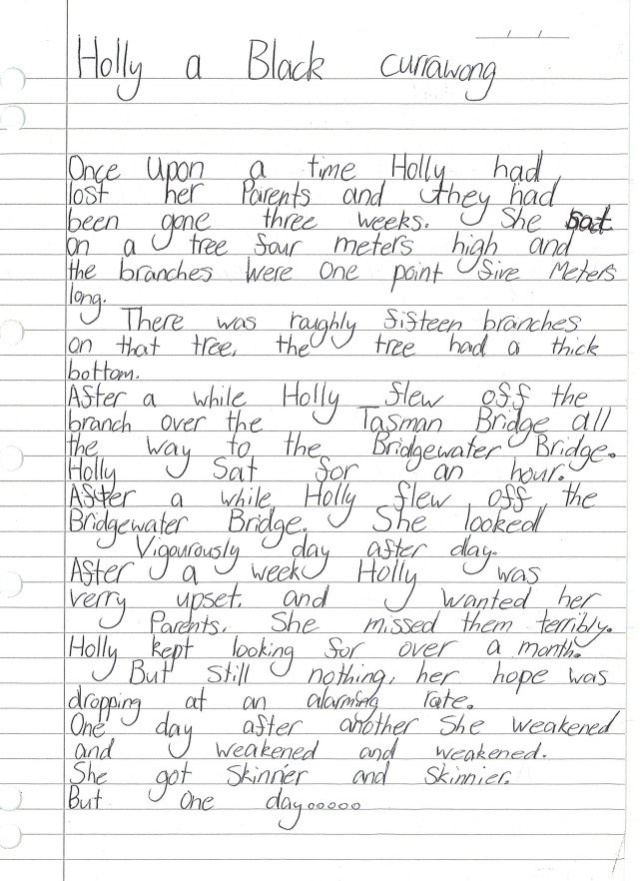 Holly a Black currawong
Once upon a time Holly had
lost her Parents and they had
been gone three weeks. She sat
on a tree four meters high and
the branches were one point five Meters
long.
There was roughly fifteen branches
on that tree, the tree had a thick
bottom.
After a while Holly flew off the
branch over the Tasman Bridge all
the way to the Bridgewater Bridge.
Holly Sat for an hour.
After a while Holly flew off the
Bridgewater Bridge. She looked
Vigourously day after day.
After a week Holly was
verry upset. and wanted her
Parents. She missed them terribly.
Holly kept looking for over a month.
But still nothing, her hope was
dropping at an alarming rate.
One day after another She weakened
and weakened and weakened.
She got Skinnier and Skinnier.
But one day.....